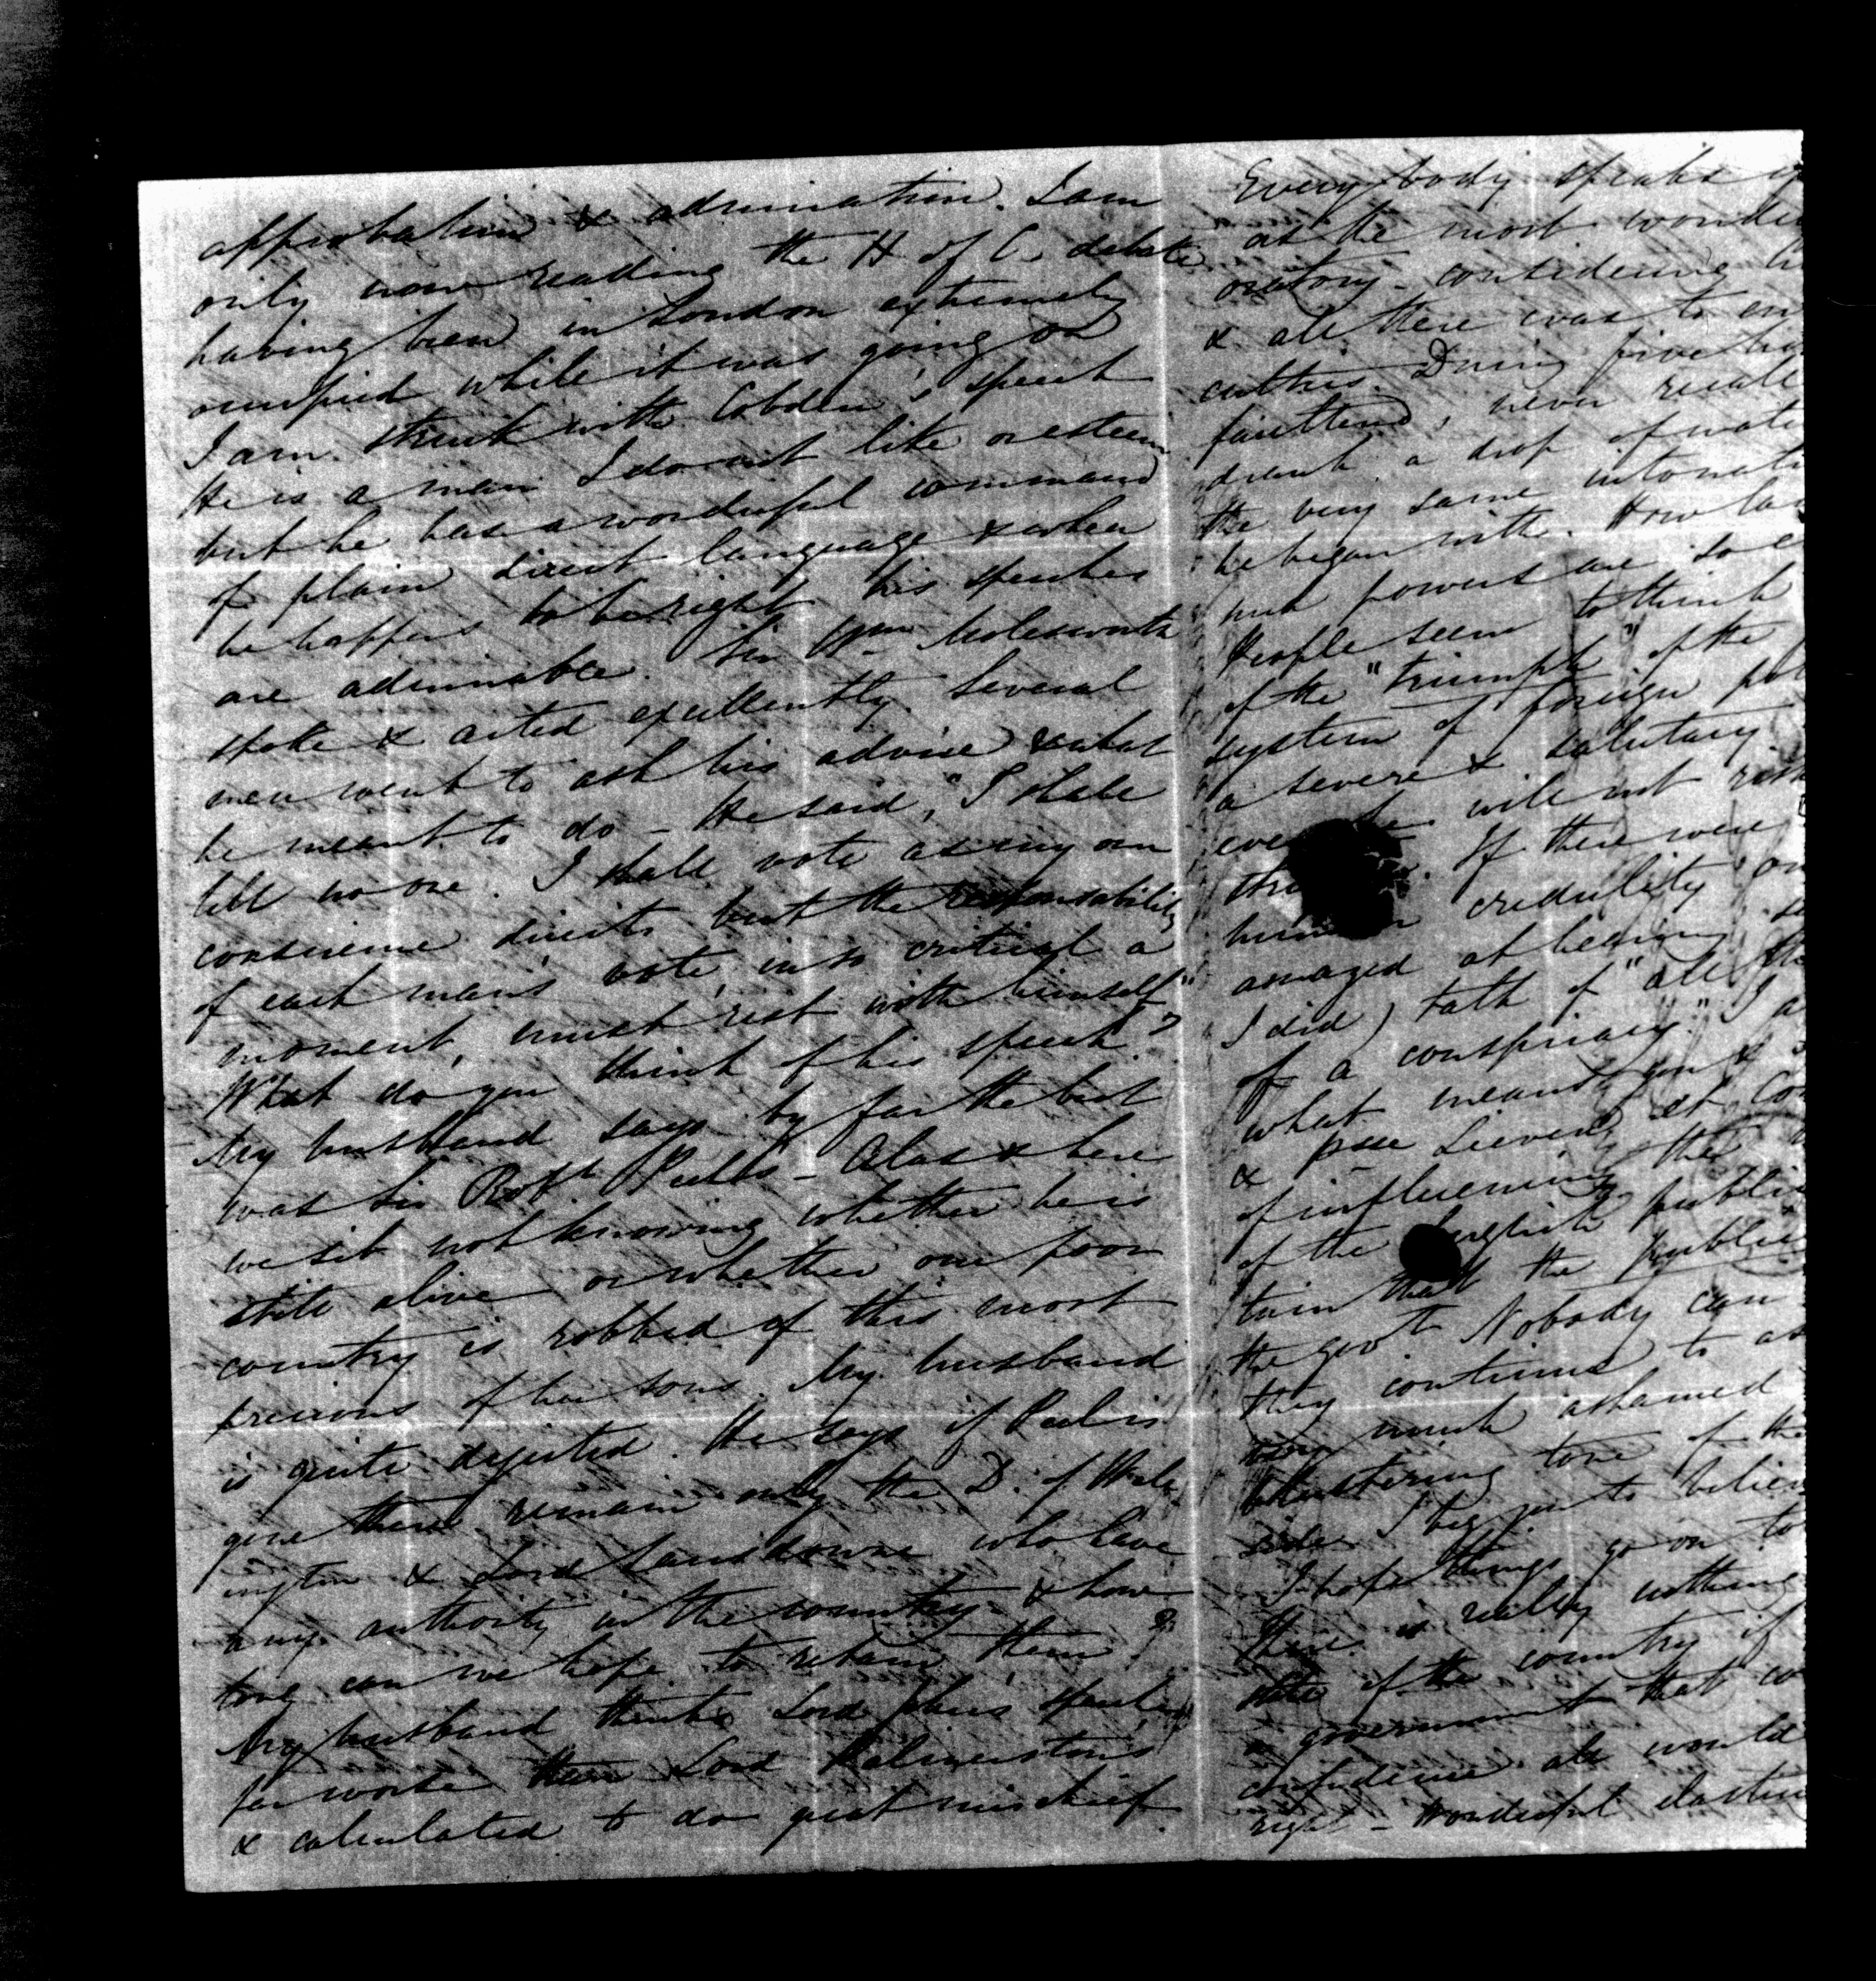 approbation & admiration. I am
only now reading the H of C. debate
having been in London extremely
occupied while it was going on
I am struck with Cobden's speech
He is a man I do not like or esteem
but he has a wonderful command
of plain direct language & when
he happens to be right his speeches
are admirable. Sir Wm Molesworth
spoke & acted excellently. Several
men went to ask his advice & what
he meant to do – He said, "I shall
tell no one. I shall vote as my own
conscience directs but the responsability
of each man's vote, in so critical a
moment, must rest with himself"
What do you think of his speech?
My husband says by far the best
was Sir Robt Peel's – Alas & here
we sit not knowing whether he is
still alive or whether our poor
country is robbed of this most
precious of her sons. My husband
is quite dejected. He says if Peel is
gone there remain only the D. of Well-
ington & Lord Lansdowne who have
any authority in the country & how
long can we hope to retain them?
My husband thinks Lord John's speech
far worse than Lord Palmerston's
& calculated to do great mischief.
Every body speaks
as the most
oratory – considering
& all there was to
During five
faultered, never
drank a drop of
the very same
he began with. How
such powers are so
People seem to think
of the "triumph" of the
system of foreign
a severe & salutary
will not
If there were
human credulity
amazed at hearing
I did) talk of "all the
of a conspiracy." I
what means you &
& pce Lieven, et
of influencing the
of the English
that the public
the govt Nobody can
they continue to
very much ashamed
blustering tone of the
side I beg you to
I hope things go on
There is really nothing
state of the country if
a government that
confidence all would
right – Wonderful